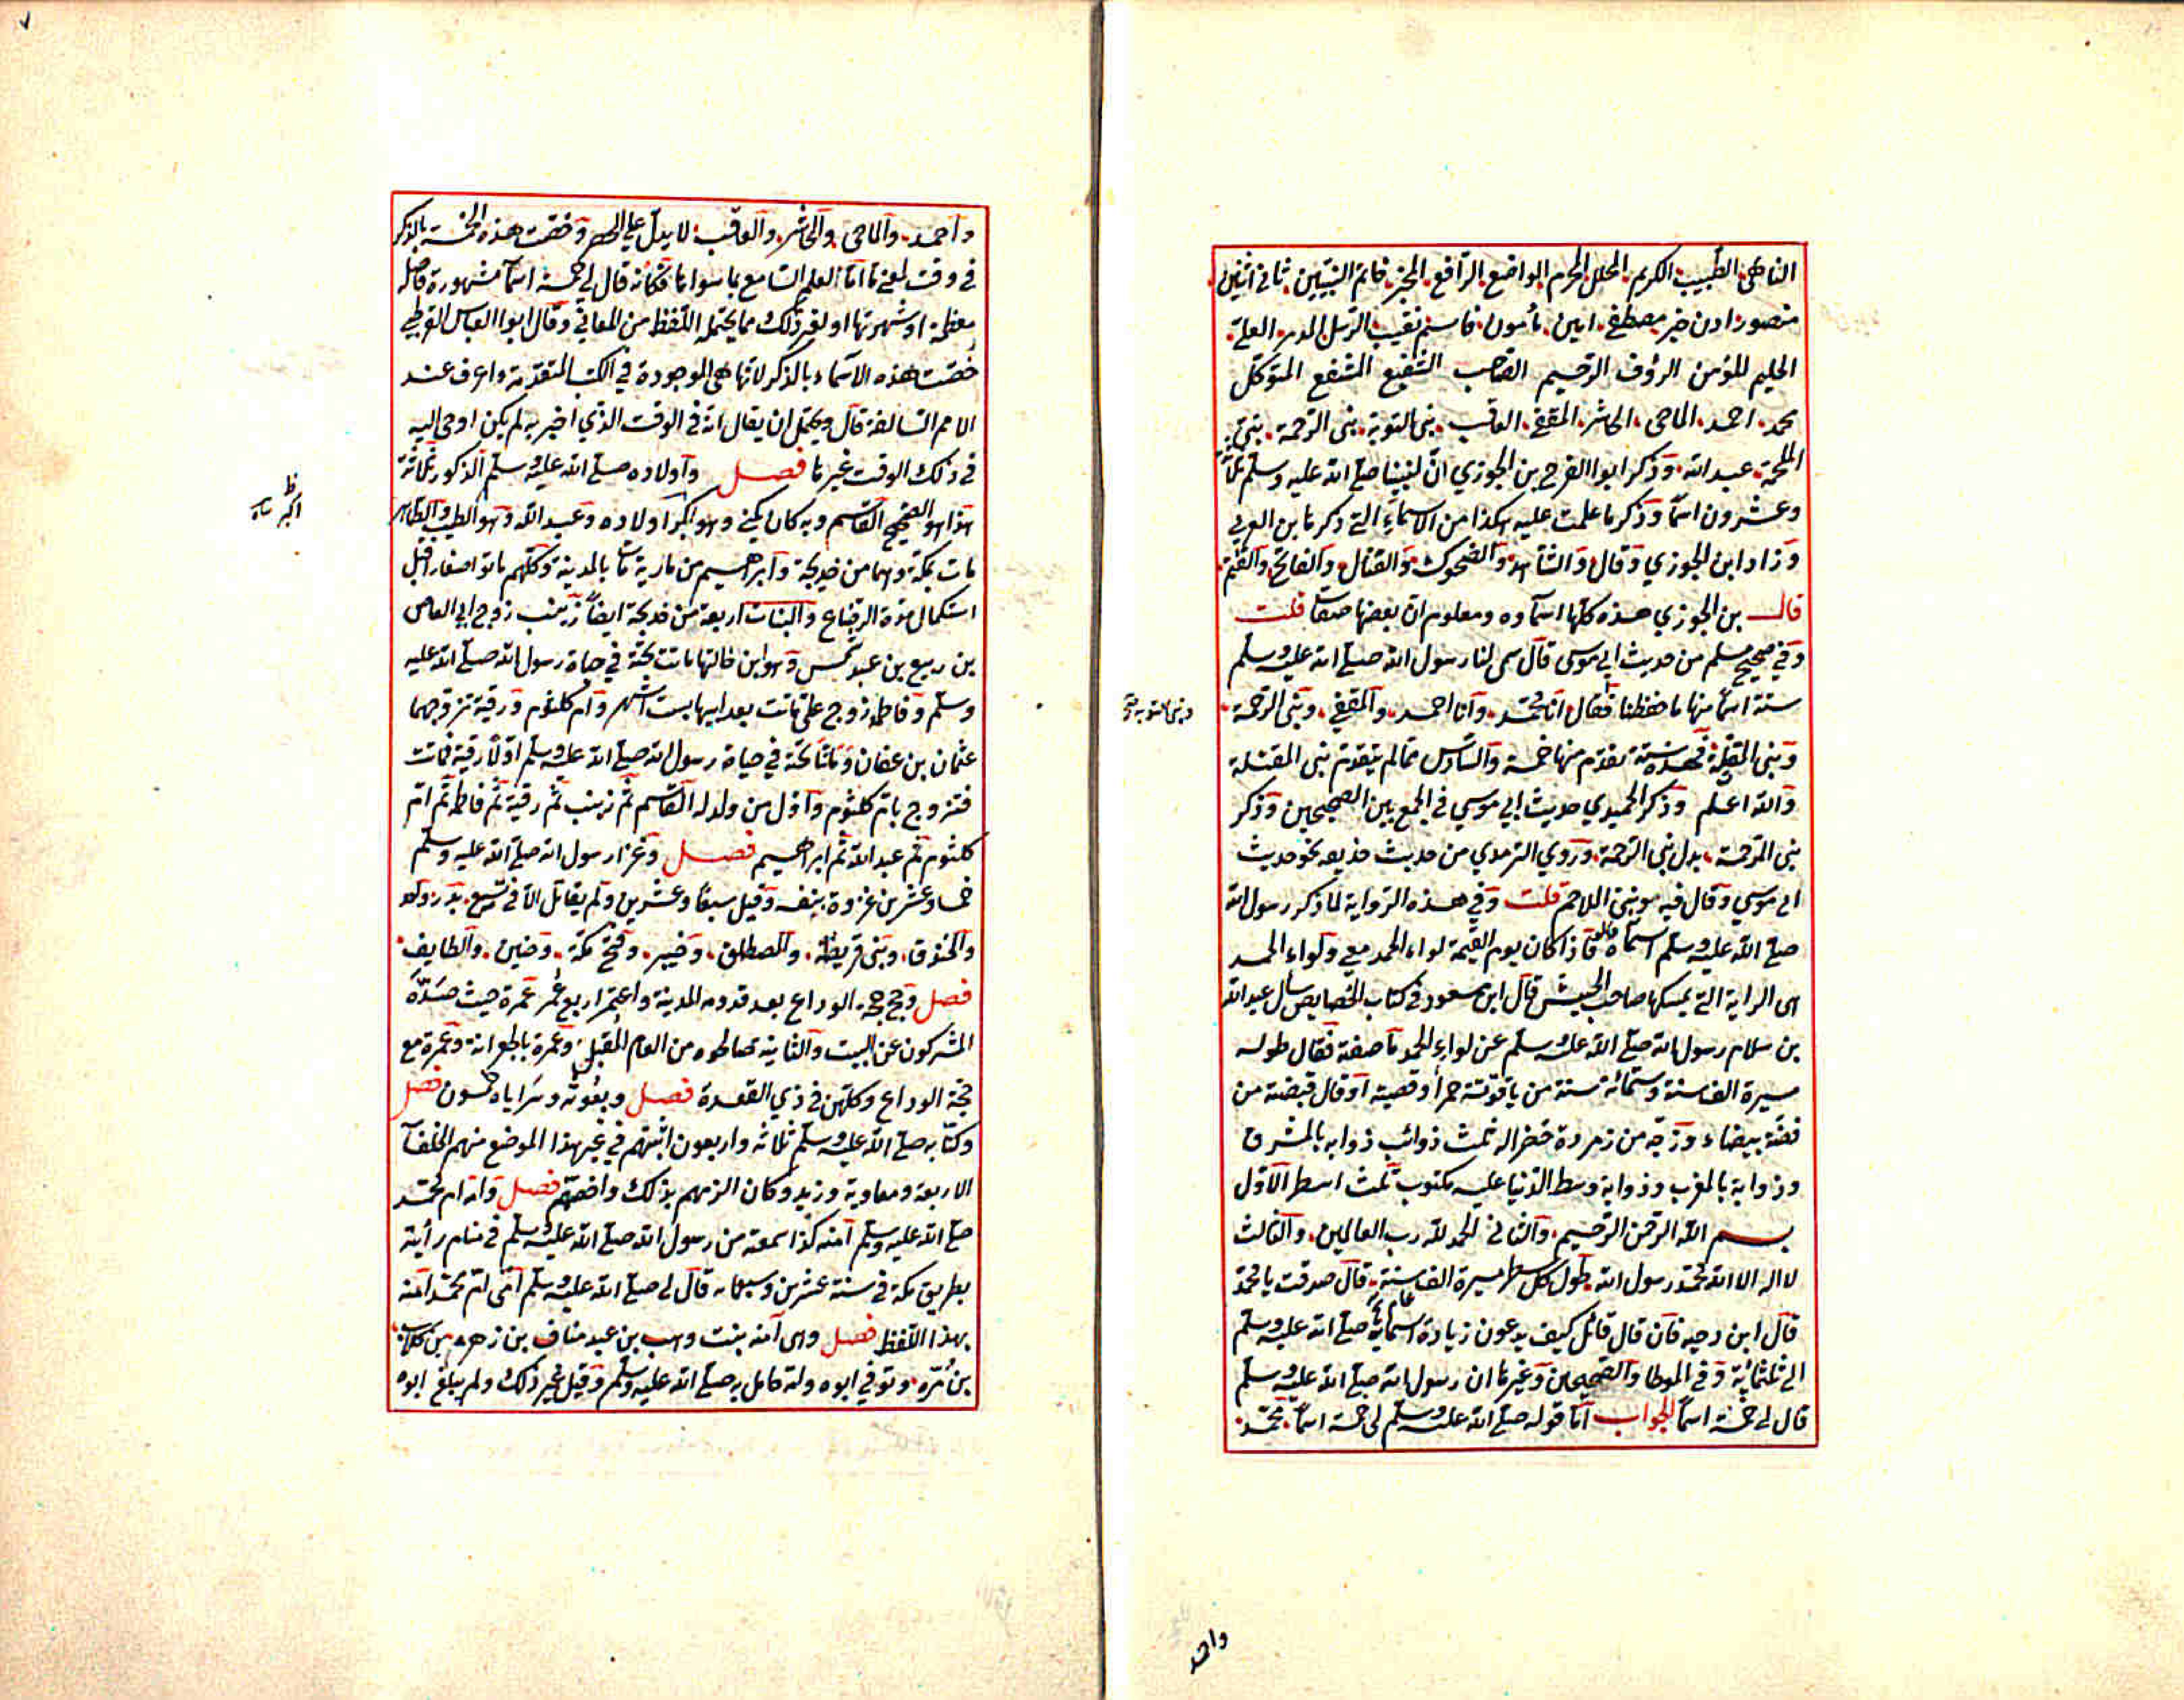 الناهي الطيب الكريم المحلل المحرم الواضع الرافع المخبر خاتم النبيين ثاني اثنين
منصور اذن خير مصطفى امين مأمون قاسم نقيب المزمل المدثر العلي
الحليم المؤمن الرؤف الرحيم الصاحب الشفيع المشفع المتوكل
محمد احمد الماحي الحاشر المقفي العاقب نبي التوبة نبي الرحمة نبي
الملحمة عبد الله وذكر ابوا الفرج بن الجوزي ان لنبينا صلى الله عليه وسلم ثلثة
وعشرون اسما وذكر ما علمت عليه هكذا من الاسماء التي ذكرها بن العربي
وزاد ابن الجوزي وقال والشاهد والضحوك والقتال والفاتح والقثم
قال بن الجوزي هذه كلها اسماوه ومعلوم ان بعضها صفات قلت
وفي صحيح مسلم من حديث ابي موسى قال سمى لنا رسول الله صلى الله عليه وسلم
ستة اسما منها ما حفظنا فقال انا محمد وانا احمد والمقفي ونبي الرحمة
ونبي التوبة
ونبي المقتلة فهذه ستة تقدم منها خمسة والسادس مما لم يتقدم نبي المقتلة
والله اعلم وذكر الحميدي حديث ابي موسى في الجمع بين الصحيحين وذكر
نبي المرحمة بدل نبي الرحمة وروي الترمدي من حديث حذيفه نحو حديث
ابي موسي وقال فيه ونبي الملاحم قلت وفي هذه الرواية لما ذكر رسول الله
صلى الله عليه وسلم اسماه قال فاذا كان يوم القيمة لواء الحمد معي ولواء الحمد
هي الراية التي يمسكها صاحب الجيش قال ابن سعود في كتاب الخصايص سال عبد الله
بن سلام رسول الله صلى الله عليه وسلم عن لواء الحمد ما صفته فقال طوله
مسيرة الف سنة وستمائة سنة من ياقوتة حمرا وقصبته او قال قبضته من
فضة بيضاء وزجه من زمردة خضرا له ثلث ذوائب ذوابه بالمشرق
وذوابة بالمغرب وذوابة وسط الدنيا عليه مكتوب ثلث اسطر الاول
بسم الله الرحمن الرحيم والثاني الحمد لله رب العالمين والثالث
لا اله الا الله محمد رسول الله طول كل سطر مسيرة الف سنة قال صدقت يا محمد
قال ابن دحيه فان قال قائل كيف يدعون زيادة اسمائه صلى الله عليه وسلم
الى ثلثمائة وفي الموطا والصحيحين وغيرها ان رسول الله صلى الله عليه وسلم
قال لي خمسة اسما الجواب اما قوله صلى الله عليه وسلم لي خمسة اسما محمد
واحمد
واحمد والماحي والحاشر والعاقب لا يدل على الحصر وخصت هذه الخمسة بالذكر
في وقت لمعنى ما اما لعلم السامع بما سواها فكانه قال لي خمسة اسما مشهورة فاضلة
معظمة او شهرتها او لغير ذلك مما يحتمله اللفظ من المعاني وقال ابوا العباس القرطبي
خصت هذه الاسماء بالذكر لانها هي الموجودة في الكتب المتقدمة واعرف عند
الامم السالفة قال ويحتمل ان يقال انه في الوقت الذي اخبر به لم يكن اوحى اليه
في ذلك الوقت غيرها فصل واولاده صلى الله عليه وسلم الذكور ثلاثة
هذا هو الصحيح القاسم وبه كان يكنى وهو اكبر اولاده وعبد الله وهو الطيب والطاهر
مات بمكة وهما من خديجة وابراهيم من مارية مات بالمدينة وكلهم ماتوا صغارا قبل
استكمال مدة الرضاع والبنات اربعة من خديجة ايضا زينب زوج ابي العاص
بن ربيع بن عبد شمس وهو ابن خالتها ماتت تحته في حياة رسول الله صلى الله عليه
وسلم وفاطمة زوج علي ماتت بعد ابيها بستة اشهر وام كلثوم ورقية تزوجهما
عثمان بن عفان وماتتا تحته في حياة رسول الله صلى الله عليه وسلم اولا رقية فماتت
فتزوج بام كلثوم واول من ولد له القاسم ثم زينب ثم رقية ثم فاطمة ثم ام
كلثوم ثم عبد الله ثم ابراهيم فصل وغزا رسول الله صلى الله عليه وسلم
خمسا وعشرين غزوة بنفسه وقيل سبعا وعشرين ولم يقاتل الا في تسع بدر واحد
والخندق وبني قريظة والمصطلق وخيبر وفتح مكة وحنين والطايف
فصل وحج حجة الوداع بعد قدومه المدينة واعتمر اربع عمر عمرة حيث صده
المشركون عن البيت والثانية صالحوه من العام المقبل وعمرة بالجعرانة وعمرة مع
حجة الوداع وكلهن في ذي القعدة فصل وبعوثه وسراياه خمسون فصل
وكتابه صلى الله عليه وسلم ثلاثة واربعون اثبتهم في غير هذا الموضع منهم الخلفا
الاربعة ومعاوية وزيد وكان الزمهم بذلك واخصهم فصل وامه ام محمد
صلى الله عليه وسلم آمنه كذا سمعته من رسول الله صلى الله عليه وسلم في منام رأيته
بطريق مكة في سنة عشرين وسبعمائة قال لي صلى الله عليه وسلم امي ام محمد آمنه
بهذا اللفظ فصل وهي آمنه بنت وهب بن عبد مناف بن زهرة بن كلاب
بن مره وتوفي ابوه وامه حامل به صلى الله عليه وسلم وقيل غير ذلك ولم يبلغ ابوه